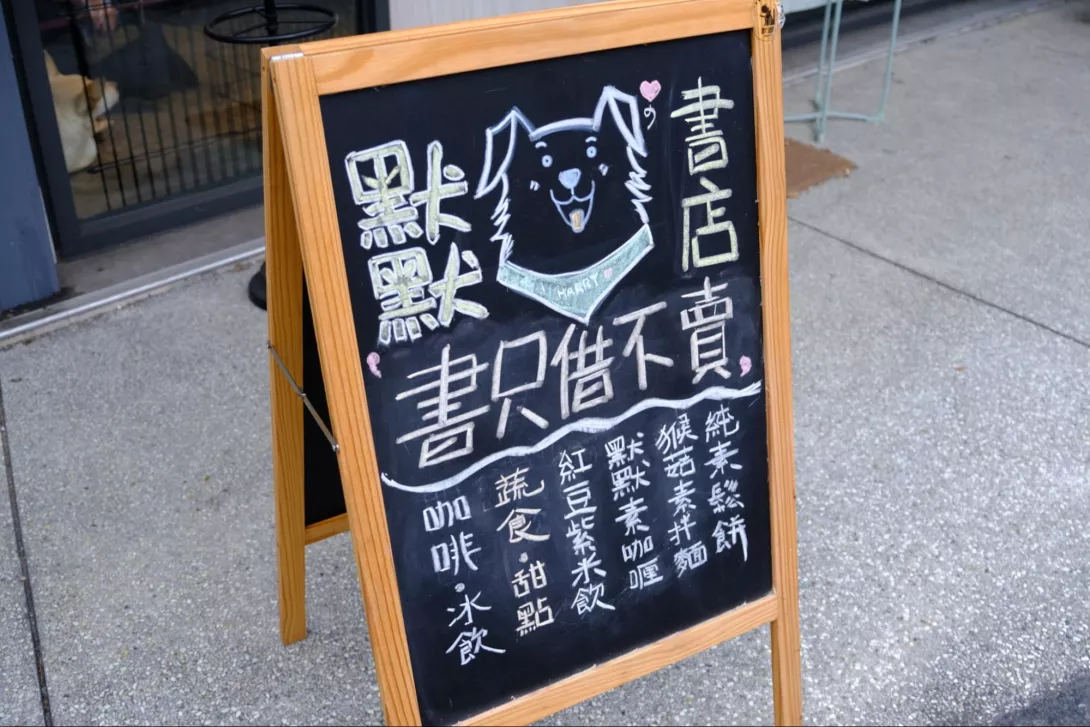 默默
書店
HARRY
書只借不賣
純素鬆餅
猴菇素拌麵
默默素咖喱
紅豆紫米飲
蔬食·甜點
咖啡·冰飲